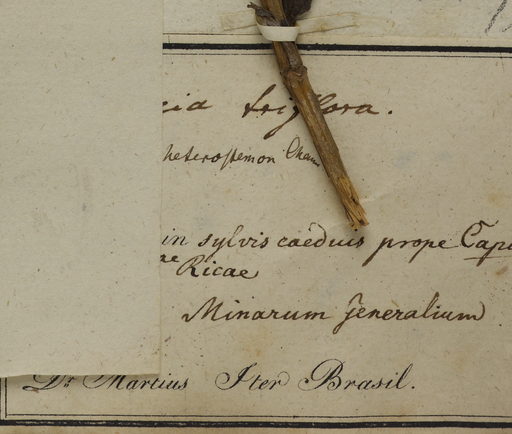 cia triflora.
heterostemon Cham
in sylvis caeduis prope Capi
ae
Ricae
Minarum generalium
Dr. Martius Iter Brasil.